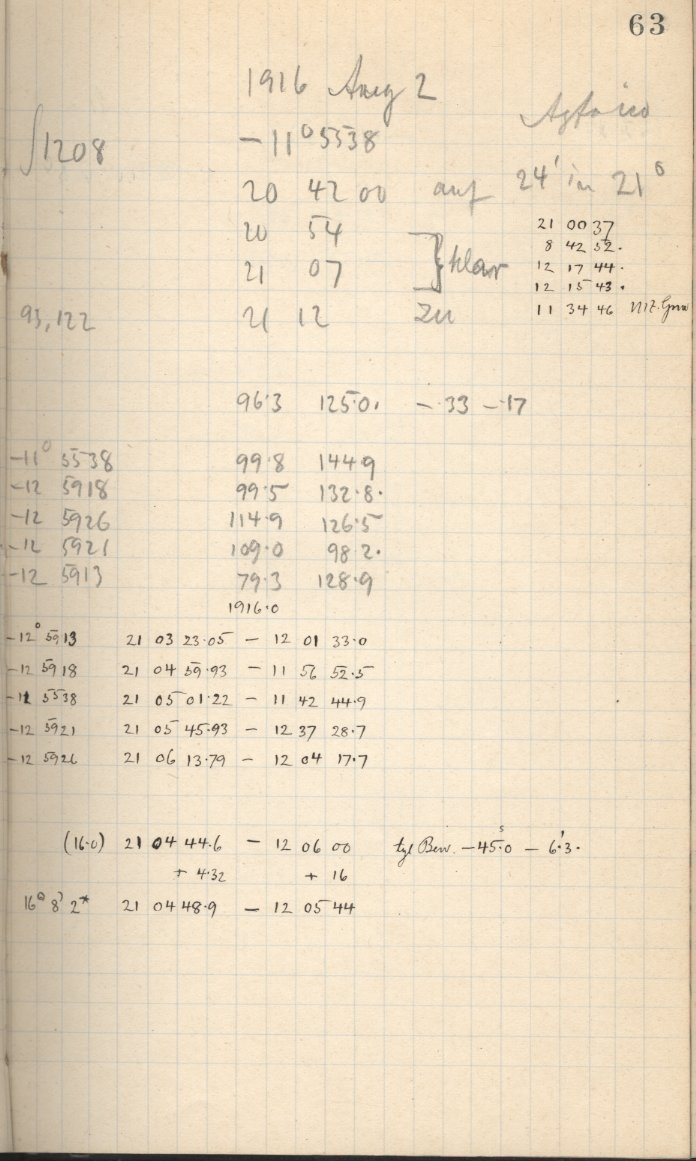 63
1916 Aug 2
Agfa iso
∫1208 -11° 5538
20 42 00 auf 24' in 21°
20 54 21 00 37
} klar 8 42 52.
21 07 12 17 44.
12 15 43.
93,122 21 12 zu 11 34 46 MIZ. Grw
96.3 125.0. -.33 -.17
-11° 5538 99.8 144.9
-12 5918 99.5 132.8.
-12 5926 114.9 126.5
-12 5921 109.0 98.2.
-12 5913 79.3 128.9
1916.0
-12° 5913 21 03 23.05 - 12 01 33.0
-12 5918 21 04 59.93 - 11 56 52.5
-11 5538 21 05 01.22 - 11 42 44.9
-12 5921 21 05 45.93 - 12 37 28.7
-12 5926 21 06 13.79 - 12 04 17.7
(16.0) 21 04 44.6 - 12 06 00 tgl Bew. -45ˢ.0 - 6'.3.
+ 4.32 + 16
16ᵃ 8' 2* 21 04 48.9 - 12 05 44